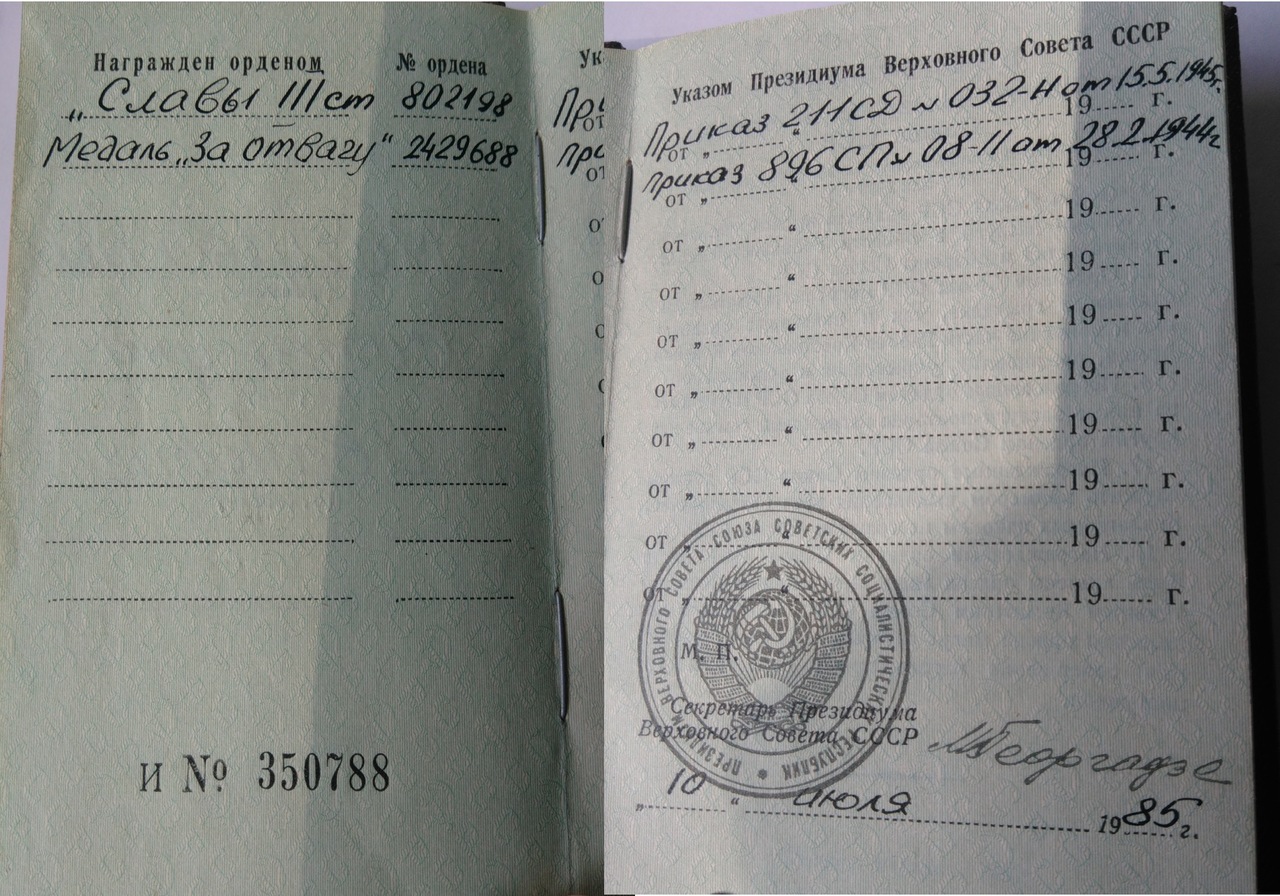 Награжден орденом № ордена
„Славы III ст 802198
Медаль „За отвагу“ 2429688
И № 350788
Ук
При
от
При
от
от
о
с
Указом Президиума Верховного Совета СССР
Приказ 211 СД № 032-Н от 15.5.1945г.
от „ “ 19 г.
Приказ 896 СП № 08-П от 28.2.1944г
от „ “ 19 г.
от „ “ 19 г.
от „ “ 19 г.
от „ “ 19 г.
от „ “ 19 г.
от „ “ 19 г.
от „ “ 19 г.
от „ “ 19 г.
от „ “ 19 г.
М. П.
ПРЕЗИДИУМ ВЕРХОВНОГО СОВЕТА СОЮЗА СОВЕТСКИХ СОЦИАЛИСТИЧЕСКИХ РЕСПУБЛИК
Секретарь Президиума
Верховного Совета СССР МГеоргадзе
„ 10 “ июля 1985 г.